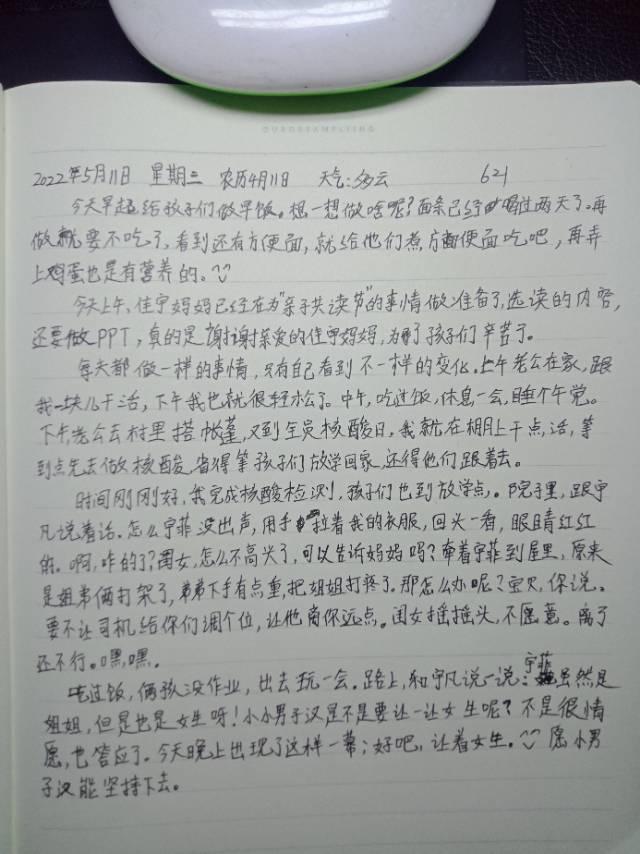 OURDREAMPLYING
2022年5月11日 星期三 农历4月11日 天气:多云 621
今天早起给孩子们做早饭。想一想做啥呢?面条已经喝过两天了。再
做就要不吃了,看到还有方便面,就给他们煮方便面吃吧,再弄
上鸡蛋也是有营养的。
今天上午,佳宁妈妈已经在为"亲子共读节"的事情做准备了,选读的内容,
还要做PPT,真的是谢谢亲爱的佳宁妈妈,为了孩子们辛苦了。
每天都做一样的事情,只有自己看到不一样的变化。上午老公在家,跟
我一块儿干活,下午我也就很轻松了。中午,吃过饭,休息一会,睡个午觉。
下午老公去村里搭帐蓬,又到全员核酸日,我就在棚上干点活,等
到点先去做核酸,省得等孩子们放学回家,还得他们跟着去。
时间刚刚好,我完成核酸检测,孩子们也到放学点。院子里,跟宁
凡说着话。怎么宁菲没出声,用手拉着我的衣服,回头一看,眼睛红红
的。啊,咋的了?闺女,怎么不高兴了,可以告诉妈妈吗?牵着宁菲到屋里,原来
是姐弟俩打架了,弟弟下手有点重,把姐姐打疼了。那怎么办呢?宝贝,你说。
要不让司机给你们调个位,让他离你远点。闺女摇摇头,不愿意。离了
还不行。嘿,嘿。
吃过饭,俩孩没作业,出去玩一会。路上,和宁凡说一说:宁菲虽然是
姐姐,但是也是女生呀!小小男子汉是不是要让一让女生呢?不是很情
愿,也答应了。今天晚上出现了这样一幕:好吧,让着女生。愿小男
子汉能坚持下去。